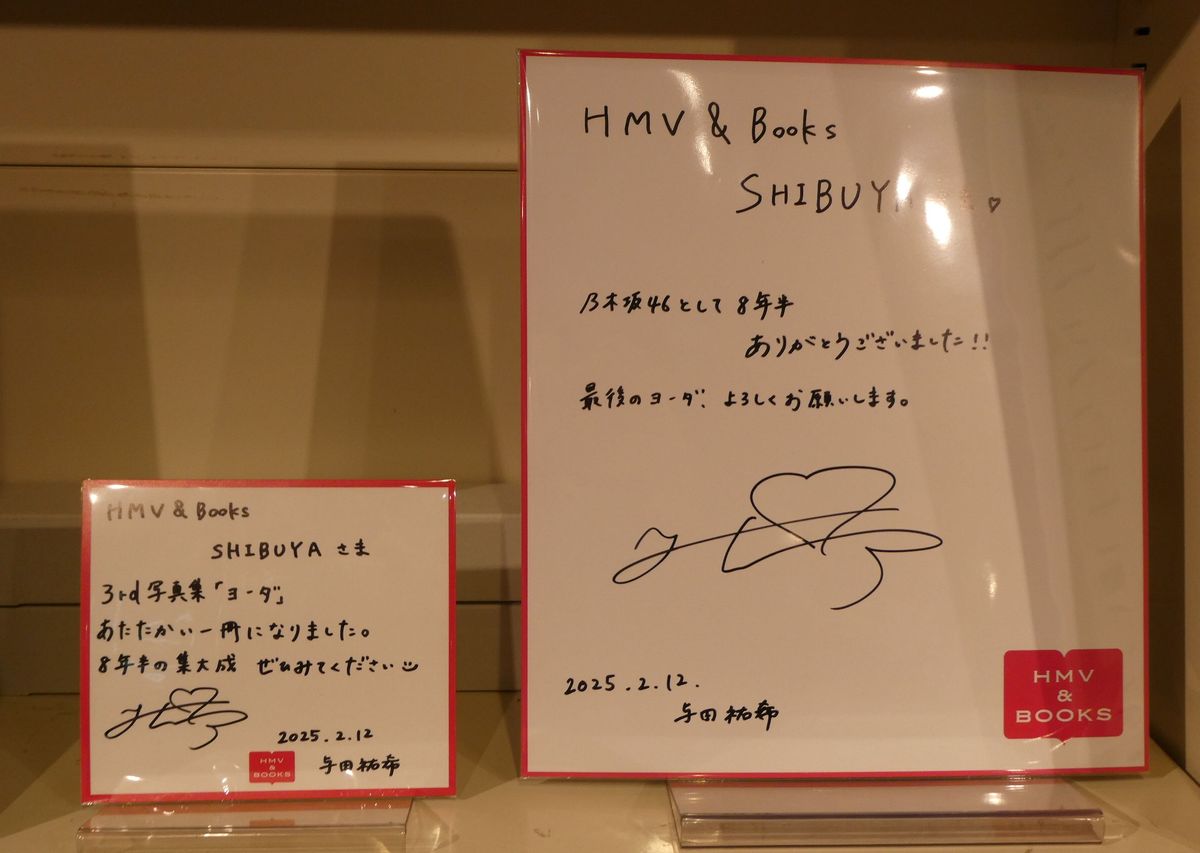 HMV & Books
SHIBUYA さま
3rd 写真集「ヨーダ」
あたたかい一冊になりました。
8年半の集大成 ぜひみてください
2025.2.12
与田祐希
HMV
&
BOOKS
HMV & Books
SHIBUYA ♡
乃木坂46として8年半
ありがとうございました!!
最後のヨーダ、よろしくお願いします。
2025.2.12.
与田祐希
HMV
&
BOOKS